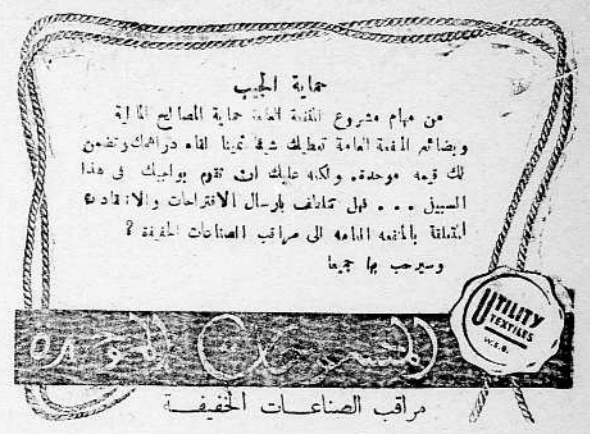 حماية الجيب
من مهام مشروع المنفعة العامة حماية المصالح المالية
وبضائع المنفعة العامة تعطيك شيئا ثمينا لقاء دراهمك وتضمن
لك قيمه موحدة. ولكنه عليك ان تقوم بواجبك في هذا
السبيل ... فهل تتلطف بارسال الاقتراحات والانتقادات
المتعلقة بالمنفعه العامه الى مراقب الصناعات الخفيفة ?
وسيرحب بها جميعا
UTILITY
TEXTILES
W.S.B.
المنسوجات الموحدة
مراقب الصناعات الخفيفة